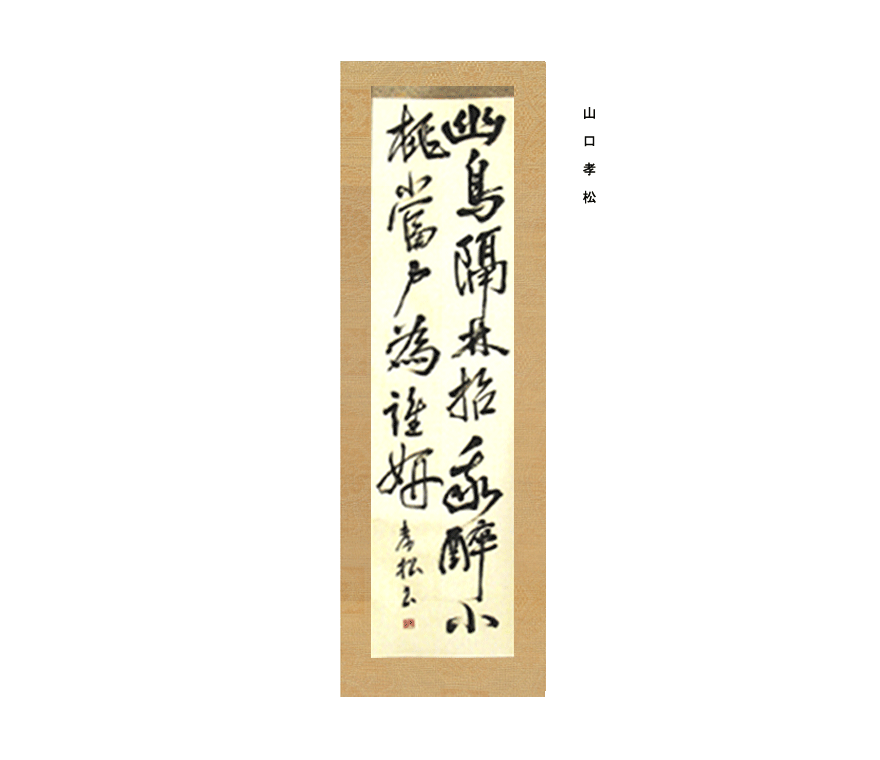 幽鳥隔林招我醉小
桃當戸為誰妍
孝松書
山口孝松